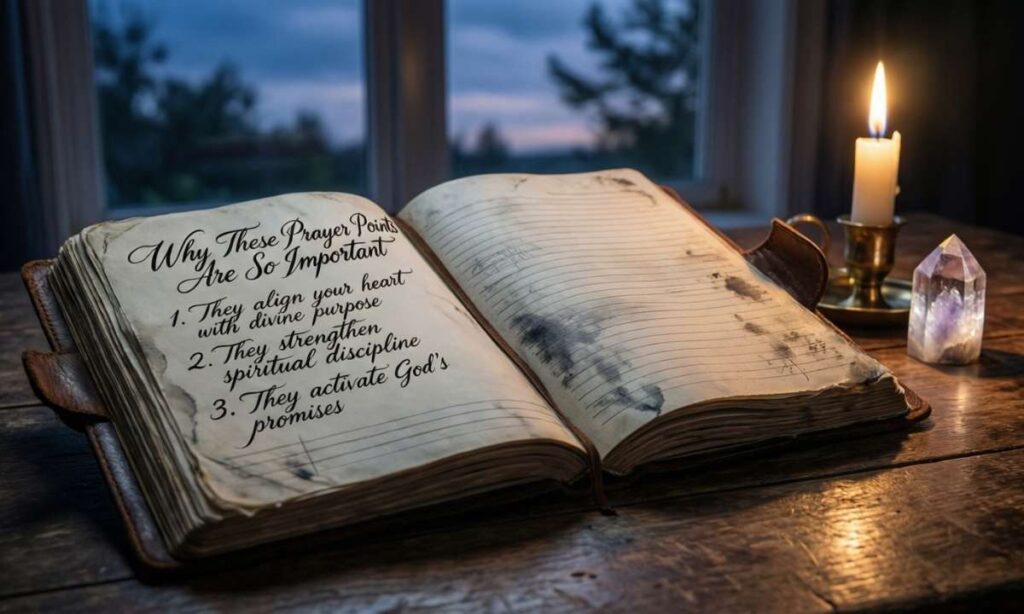 Why These Prayer Points
Are So Important
1. They align your heart
with divine purpose
2. They strengthen
spiritual discipline
3. They activate God's
promises